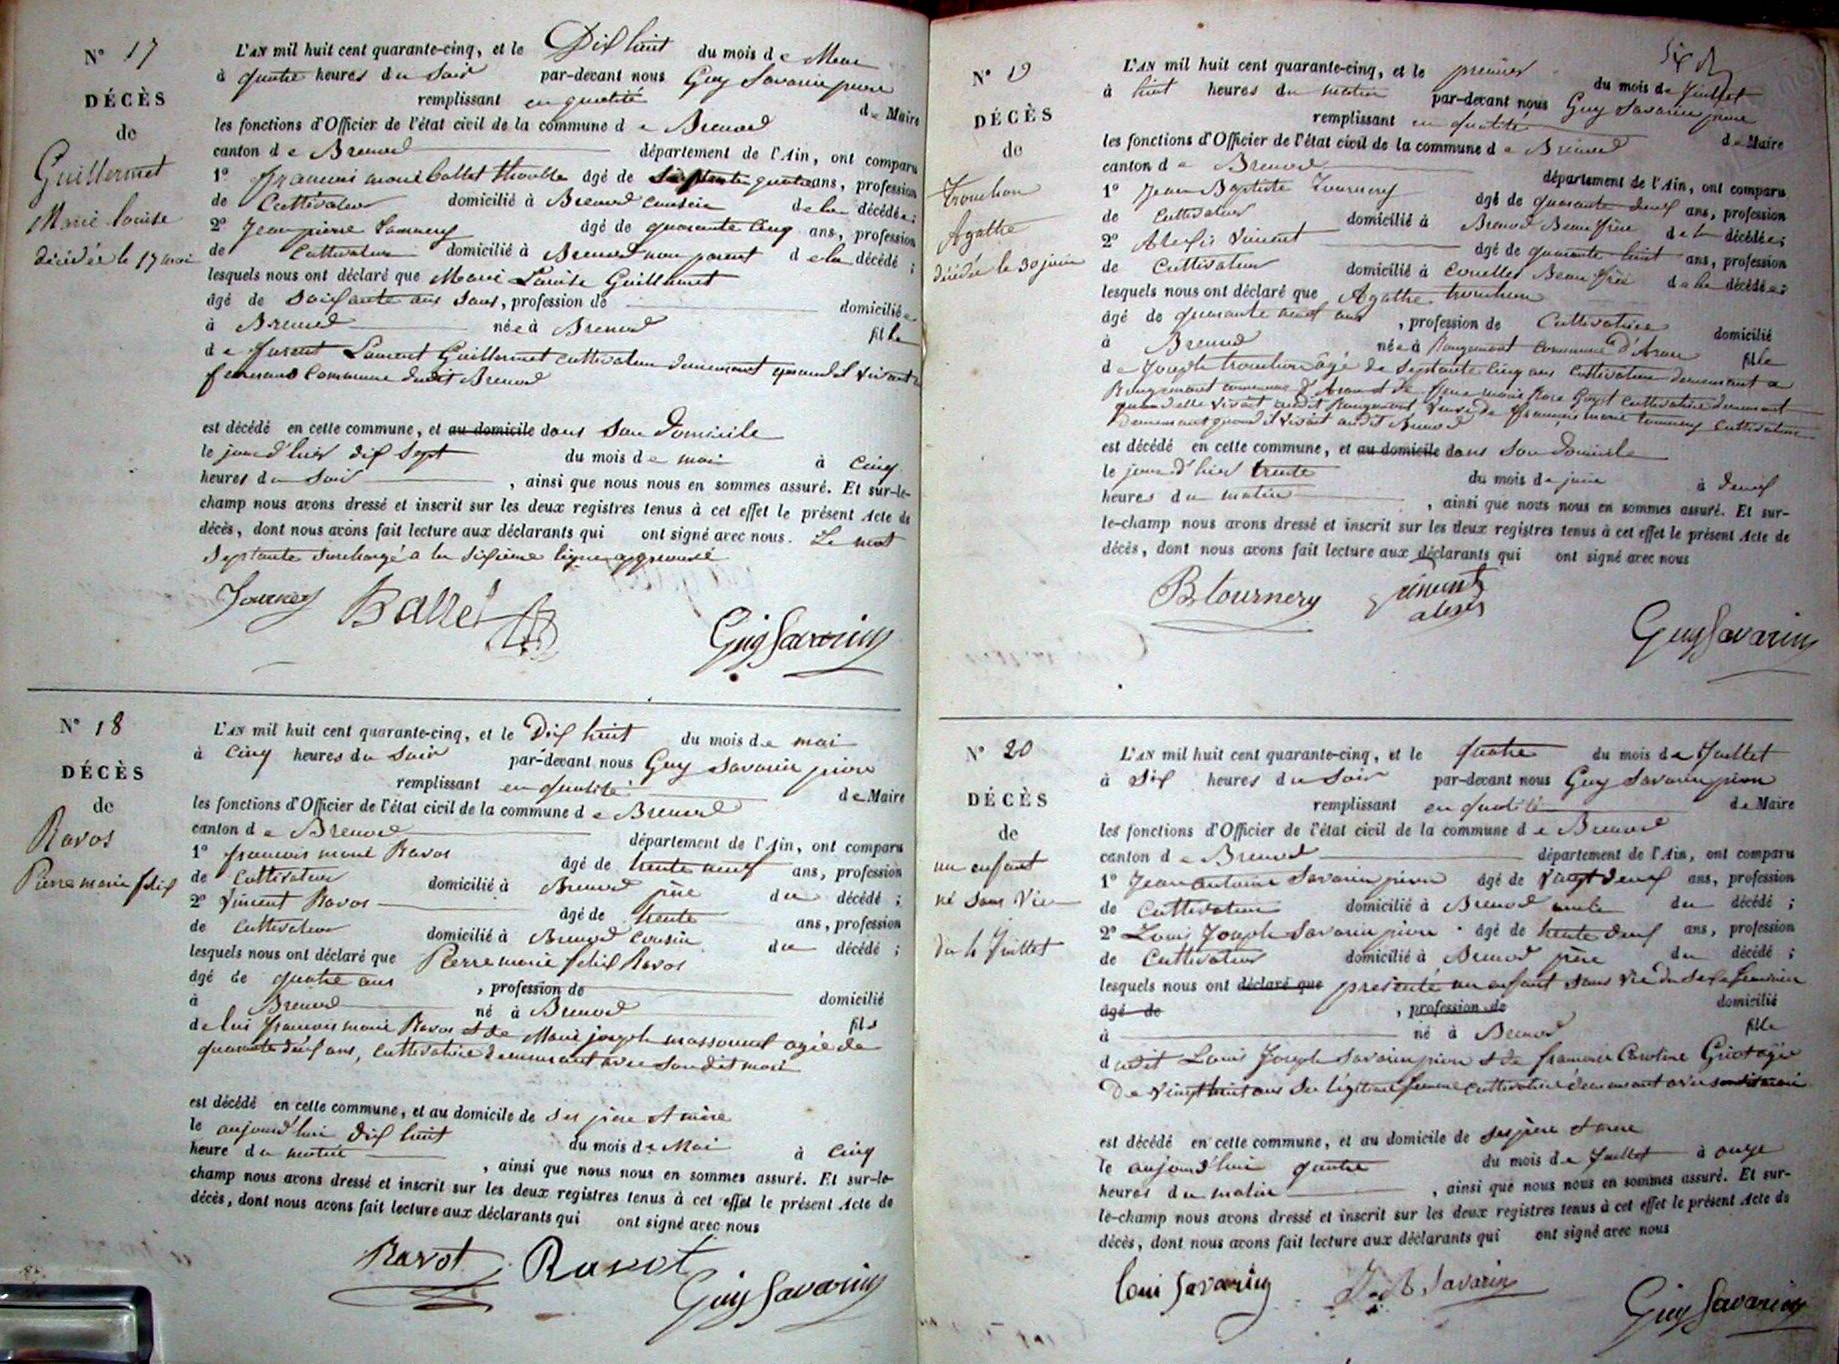 N° 17
DÉCÈS
de
Guillermet
Marie louise
décédée le 17 mai
L'AN mil huit cent quarante-cinq, et le Dix huit du mois de Mai
à quatre heures du Soir par-devant nous Guy Savarin pivon
remplissant en qualité de Maire
les fonctions d'Officier de l'état civil de la commune de Brenod
canton de Brenod département de l'Ain, ont comparu
1° françois marie Ballet âgé de ans, profession
de Cultivateur domicilié à Brenod cousin de la décédée;
2° Jean pierre Tournery âgé de quarante cinq ans, profession
de Cultivateur domicilié à Brenod non parent de la décédé;
lesquels nous ont déclaré que Marie Louise Guillermet
âgé de Soixante ans, profession de domiciliée
à Brenod née à Brenod fille
de Laurent Guillermet cultivateur demeurant quand il vivait
commune dudit Brenod
est décédé en cette commune, et au domicile dans Son Domicile
le jour d'hier dix Sept du mois de mai à Cinq
heures du Soir , ainsi que nous nous en sommes assuré. Et sur-le-
champ nous avons dressé et inscrit sur les deux registres tenus à cet effet le présent Acte de
décès, dont nous avons fait lecture aux déclarants qui ont signé avec nous. Le mot
Septante Surchargé a la Sixième ligne approuvé
Tournery Ballet
Guy Savarin
N° 18
DÉCÈS
de
Ravos
Pierre marie félix
L'AN mil huit cent quarante-cinq, et le Dix huit du mois de mai
à Cinq heures du Soir par-devant nous Guy Savarin pivon
remplissant en qualité de Maire
les fonctions d'Officier de l'état civil de la commune de Brenod
canton de Brenod département de l'Ain, ont comparu
1° francois marie Ravos âgé de trente neuf ans, profession
de Cultivateur domicilié à Brenod père du décédé;
2° Vincent Ravos âgé de trente ans, profession
de Cultivateur domicilié à Brenod Cousin du décédé;
lesquels nous ont déclaré que Pierre marie félix Ravos
âgé de quatre ans , profession de domicilié
à Brenod né à Brenod fils
de lui francois marie Ravos et de Marie joseph massonnet agée de
quarante deux ans, cultivatrice demeurant avec Son dit mari
est décédé en cette commune, et au domicile de Ses père et mère
le aujourd'hui dix huit du mois de Mai à Cinq
heure du matin , ainsi que nous nous en sommes assuré. Et sur-le-
champ nous avons dressé et inscrit sur les deux registres tenus à cet effet le présent Acte de
décès, dont nous avons fait lecture aux déclarants qui ont signé avec nous
Ravot Ravot
Guy Savarin
N° 19
DÉCÈS
de
tronchon
Agathe
décédée le 30 juin
L'AN mil huit cent quarante-cinq, et le premier du mois de Juillet
à huit heures du matin par-devant nous Guy Savarin pivon
remplissant en qualité de Maire
les fonctions d'Officier de l'état civil de la commune de Brenod
canton de Brenod département de l'Ain, ont comparu
1° Jean Baptiste Tournery âgé de quarante deux ans, profession
de Cultivateur domicilié à Brenod Beau frère de la décédée;
2° Alexis Vincent âgé de quarante huit ans, profession
de Cultivateur domicilié à Corcelles Beau frère de la décédée;
lesquels nous ont déclaré que Agathe tronchon
âgé de quarante neuf ans , profession de Cultivatrice domicilié
à Brenod née à Rougemont commune d'Aran fille
de Joseph tronchon âgé de Septante cinq ans Cultivateur demeurant a
Rougemont commune d'Aran et de marie Rose Goyet cultivatrice demeurant
quand elle vivait audit Rougemont, Veuve de françois marie tournery cultivateur
Demeurant quand il vivait audit Brenod
est décédé en cette commune, et au domicile dans Son Domicile
le jour d'hier trente du mois de juin à deux
heures du matin , ainsi que nous nous en sommes assuré. Et sur-
le-champ nous avons dressé et inscrit sur les deux registres tenus à cet effet le présent Acte de
décès, dont nous avons fait lecture aux déclarants qui ont signé avec nous
B tournery vincent
alexis
Guy Savarin
N° 20
DÉCÈS
de
un enfant
né Sans Vie
du 4 Juillet
L'AN mil huit cent quarante-cinq, et le quatre du mois de Juillet
à Six heures du Soir par-devant nous Guy Savarin pivon
remplissant en qualité de Maire
les fonctions d'Officier de l'état civil de la commune de Brenod
canton de Brenod département de l'Ain, ont comparu
1° Jean antoine Savarin pivon âgé de Vingt deux ans, profession
de Cultivateur domicilié à Brenod oncle du décédé;
2° Louis Joseph Savarin pivon âgé de trente deux ans, profession
de Cultivateur domicilié à Brenod père du décédé;
lesquels nous ont déclaré que présenté un enfant Sans Vie du Sexe feminin
âgé de , profession de domicilié
à né à Brenod fille
dudit Louis Joseph Savarin pivon et de francoise Caroline Griot agée
De vingt huit ans Sa légitime femme cultivatrice demeurant avec sondit mari
est décédé en cette commune, et au domicile de Ses père et mere
le aujourd'hui quatre du mois de Juillet à onze
heures du matin , ainsi que nous nous en sommes assuré. Et sur-
le-champ nous avons dressé et inscrit sur les deux registres tenus à cet effet le présent Acte de
décès, dont nous avons fait lecture aux déclarants qui ont signé avec nous
loui Savarin Savarin
Guy Savarin